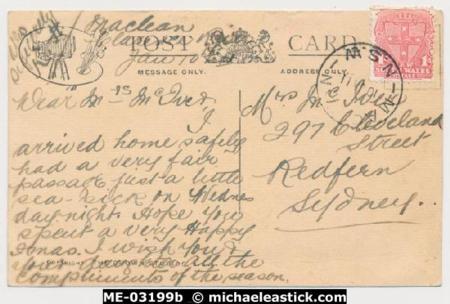 Maclean
POST CARD
MESSAGE ONLY.
ADDRESS ONLY.
Dear Mrs McIver.
I
arrived home safely
had a very fair
passage just a little
sea-sick on Wednes
day night. Hope you
spent a very Happy
Xmas. I wish you
all the
compliments of the season.
Mrs McIver
297 Cleveland
Street
Redfern
Sydney.
N.S.W
WALES
ME-03199b © michaeleastick.com